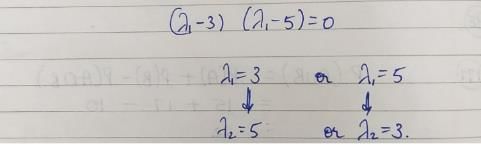 (λ₁-3) (λ₁-5)=0
λ₁=3 or λ₁=5
↓ ↓
λ₂=5 or λ₂=3.